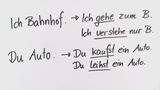 Ich Bahnhof. → Ich gehe zum B.
Ich verstehe nur B.
Du Auto. → Du kaufst ein Auto.
Du leihst ein Auto.